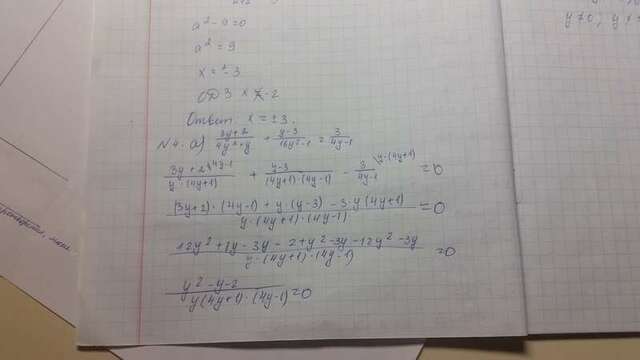 a² - 9 = 0
a² = 9
x = ± 3
ОДЗ x ≠ -2
Ответ. x = ± 3.
N4. а) (3y+2)/(4y²+y) + (y-3)/(16y²-1) = 3/(4y-1)
(3y+2)/(y·(4y+1)) \4y-1 + (y-3)/((4y+1)·(4y-1)) - 3/(4y-1) \y·(4y+1) = 0
((3y+2)·(4y-1)+y·(y-3)-3·y(4y+1))/(y·(4y+1)·(4y-1)) = 0
(12y²+8y-3y-2+y²-3y-12y²-3y)/(y·(4y+1)·(4y-1)) = 0
(y²-y-2)/(y(4y+1)·(4y-1)) = 0
y≠0, y≠